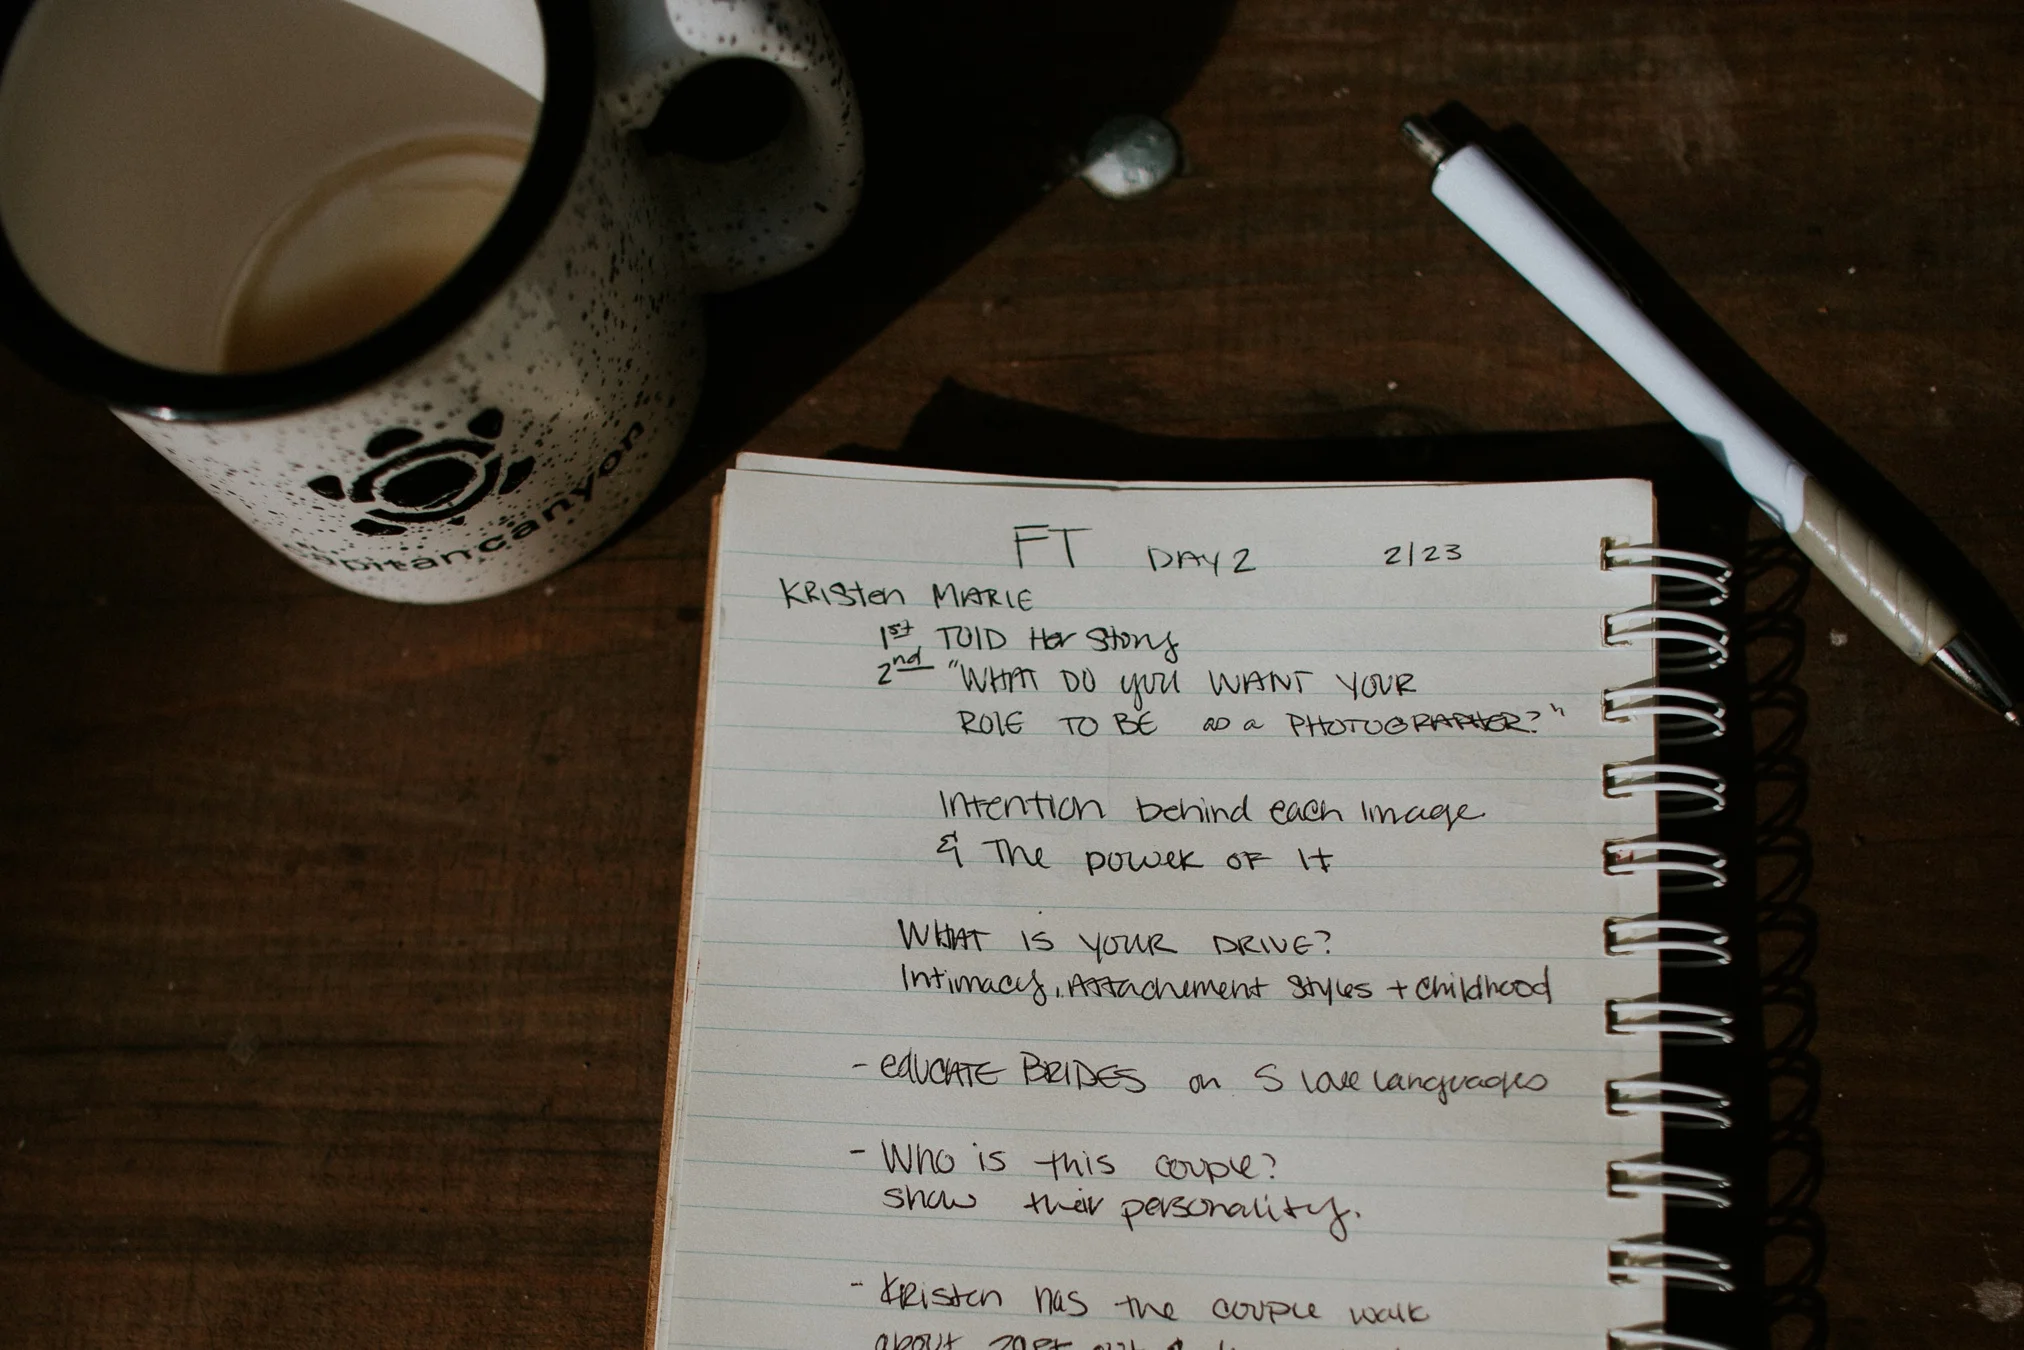 capitancanyon
FT DAY 2 2/23
KRISten MARIE
1st TOlD Her Story
2nd "WHAT DO you WANT YOUR
ROlE TO BE as a PHOTOGRAPHER?"
Intention behind each Image
& The power OF It
WHAT IS YOUR DRIVE?
Intimacy, Attachement Styles + Childhood
- edUCATE BRIDES on 5 love languages
- Who is this couple?
show their personality.
- KRisten has the couple walk
about 20ft